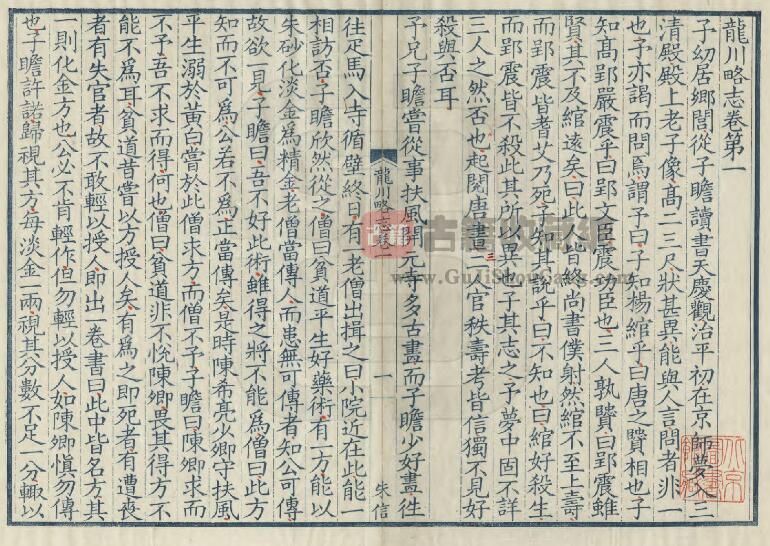 龍川略志卷第一
予幼居鄉閭從子瞻讀書天慶觀治平初在京師夢入三
清殿殿上老子像高二三尺狀甚異能與人言問者非一
也予亦謁而問焉謂予曰子知楊綰乎曰唐之賢相也子
知高郢嚴震乎曰郢文臣震功臣也三人孰賢曰郢震雖
賢其不及綰遠矣曰此人皆終尚書僕射然綰不至上壽
而郢震皆耆艾乃死子知其說乎曰不知也曰綰好殺生
而郢震皆不殺此其所以異也子其志之予夢中固不詳
三人之然否也起閱唐書二官秩壽考皆信獨不見好
三
殺與否耳
予兄子瞻嘗從事扶風開元寺多古畫而子瞻少好畫往
龍川略志卷一
一
朱信
往疋馬入寺循壁終日有一老僧出揖之曰小院近在此能一
相訪否子瞻欣然從之僧曰貧道平生好藥術有一方能以
朱砂化淡金為精金老僧當傳人而患無可傳者知公可傳
故欲一見子瞻曰吾不好此術雖得之將不能為僧曰此方
知而不可為公若不為正當傳矣是時陳希亮少卿守扶風
平生溺於黃白嘗於此僧求方而僧不予子瞻曰陳卿求而
不予吾不求而得何也僧曰貧道非不悅陳卿畏其得方不
能不為耳貧道昔嘗以方授人矣有為之即死者有遭喪
者有失官者故不敢輕以授人即出一卷書曰此中皆名方其
一則化金方也公必不肯輕作但勿輕以授人如陳卿慎勿傳
也子瞻許諾歸視其方每淡金一兩視其分數不足一分輙以
古籍收藏網
www.GuJiShouCang.com